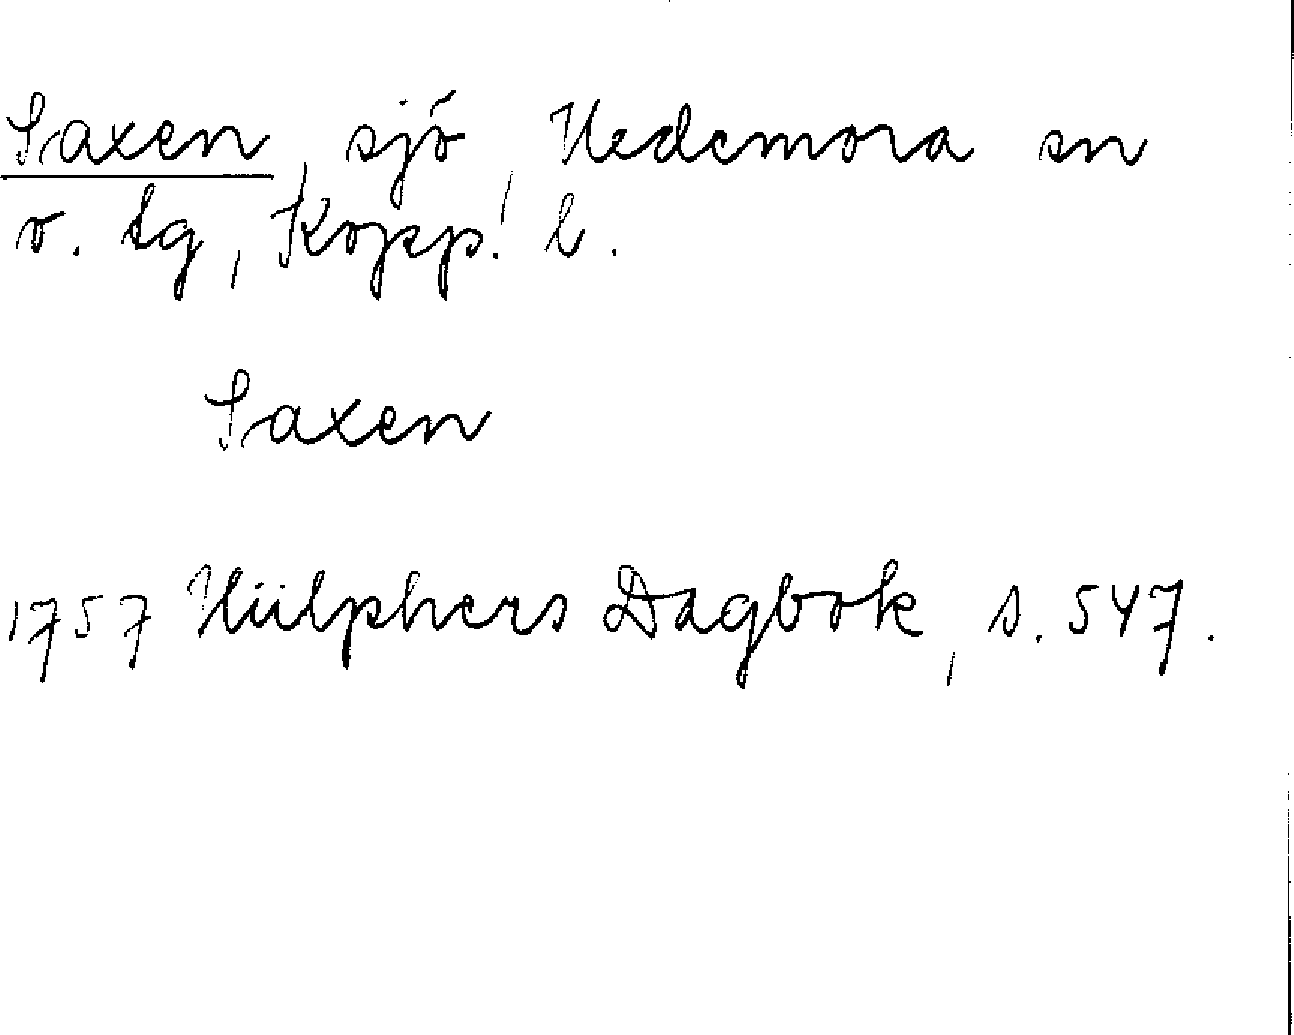 Saxen, sjö, Hedemora sn
o. tg, Kopp. l.
Saxen
1757 Hülphers Dagbok, s. 547.